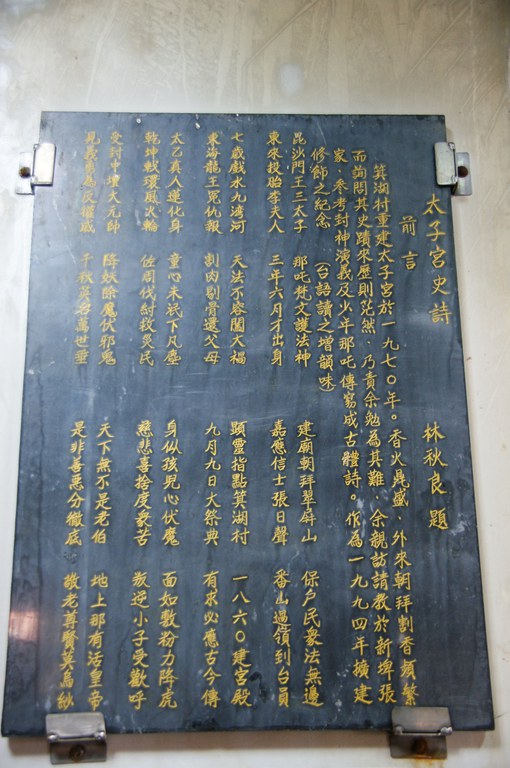 太子宮史詩 林秋良 題
前言
箕湖村重建太子宮於一九七〇年。香火鼎盛、外來朝拜割香頻繁
而詢問其史蹟來歷則茫然、乃責余勉為其難、余親訪請教於新埤張
家、參考封神演義及少年那吒傳寫成古體詩。作為一九九四年擴建
修飾之紀念 (台語讀之增韻味)
毘沙門王三太子 那吒梵文護法神 建廟朝拜翠屏山 保戶民衆法無邊
東來投胎李夫人 三年六月才出身 嘉應信士張日聲 番山過領到台員
七歲戲水九湾河 天法不容闖大禍 顯靈指點箕湖村 一八六〇建宮殿
東海龍王冤仇報 割肉剔骨還父母 九月九日大祭典 有求必應古今傳
太乙真人蓮化身 童心未泯下凡塵 身似孩兒心伏魔 面如敷粉力降虎
乾坤戟環風火輪 佐周伐紂救災民 慈悲喜捨度衆苦 叛逆小子受歡呼
受封中壇大元帥 降妖除魔伏邪鬼 天下無不是老伯 地上那有活皇帝
見義勇為反權威 千秋英名萬世垂 是非善惡分徹底 敬老尊賢莫烏紗